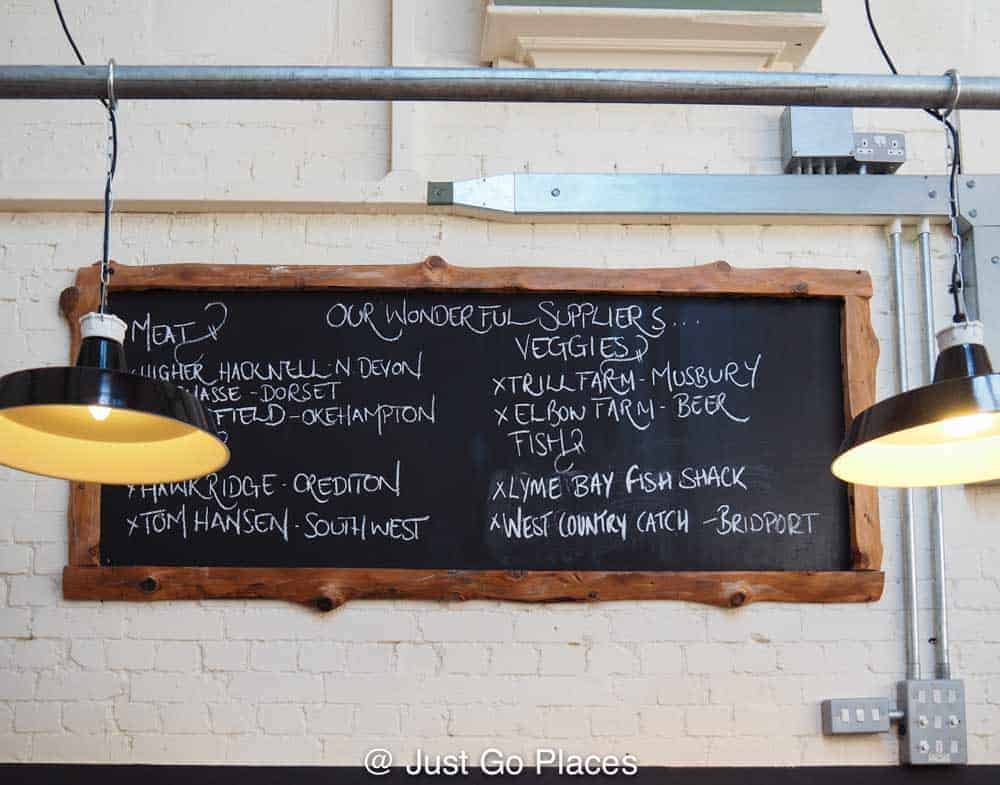 OUR WONDERFUL SUPPLIERS....
MEAT
HIGHER HACKNELL-N DEVON
- DORSET
- OKEHAMPTON
x HAWKRIDGE - CREDITON
x TOM HANSEN - SOUTH WEST
VEGGIES
x TRILL FARM - MUSBURY
x ELBOW FARM - BEER
FISH
x LYME BAY FISH SHACK
x WEST COUNTRY CATCH - BRIDPORT
@ Just Go Places